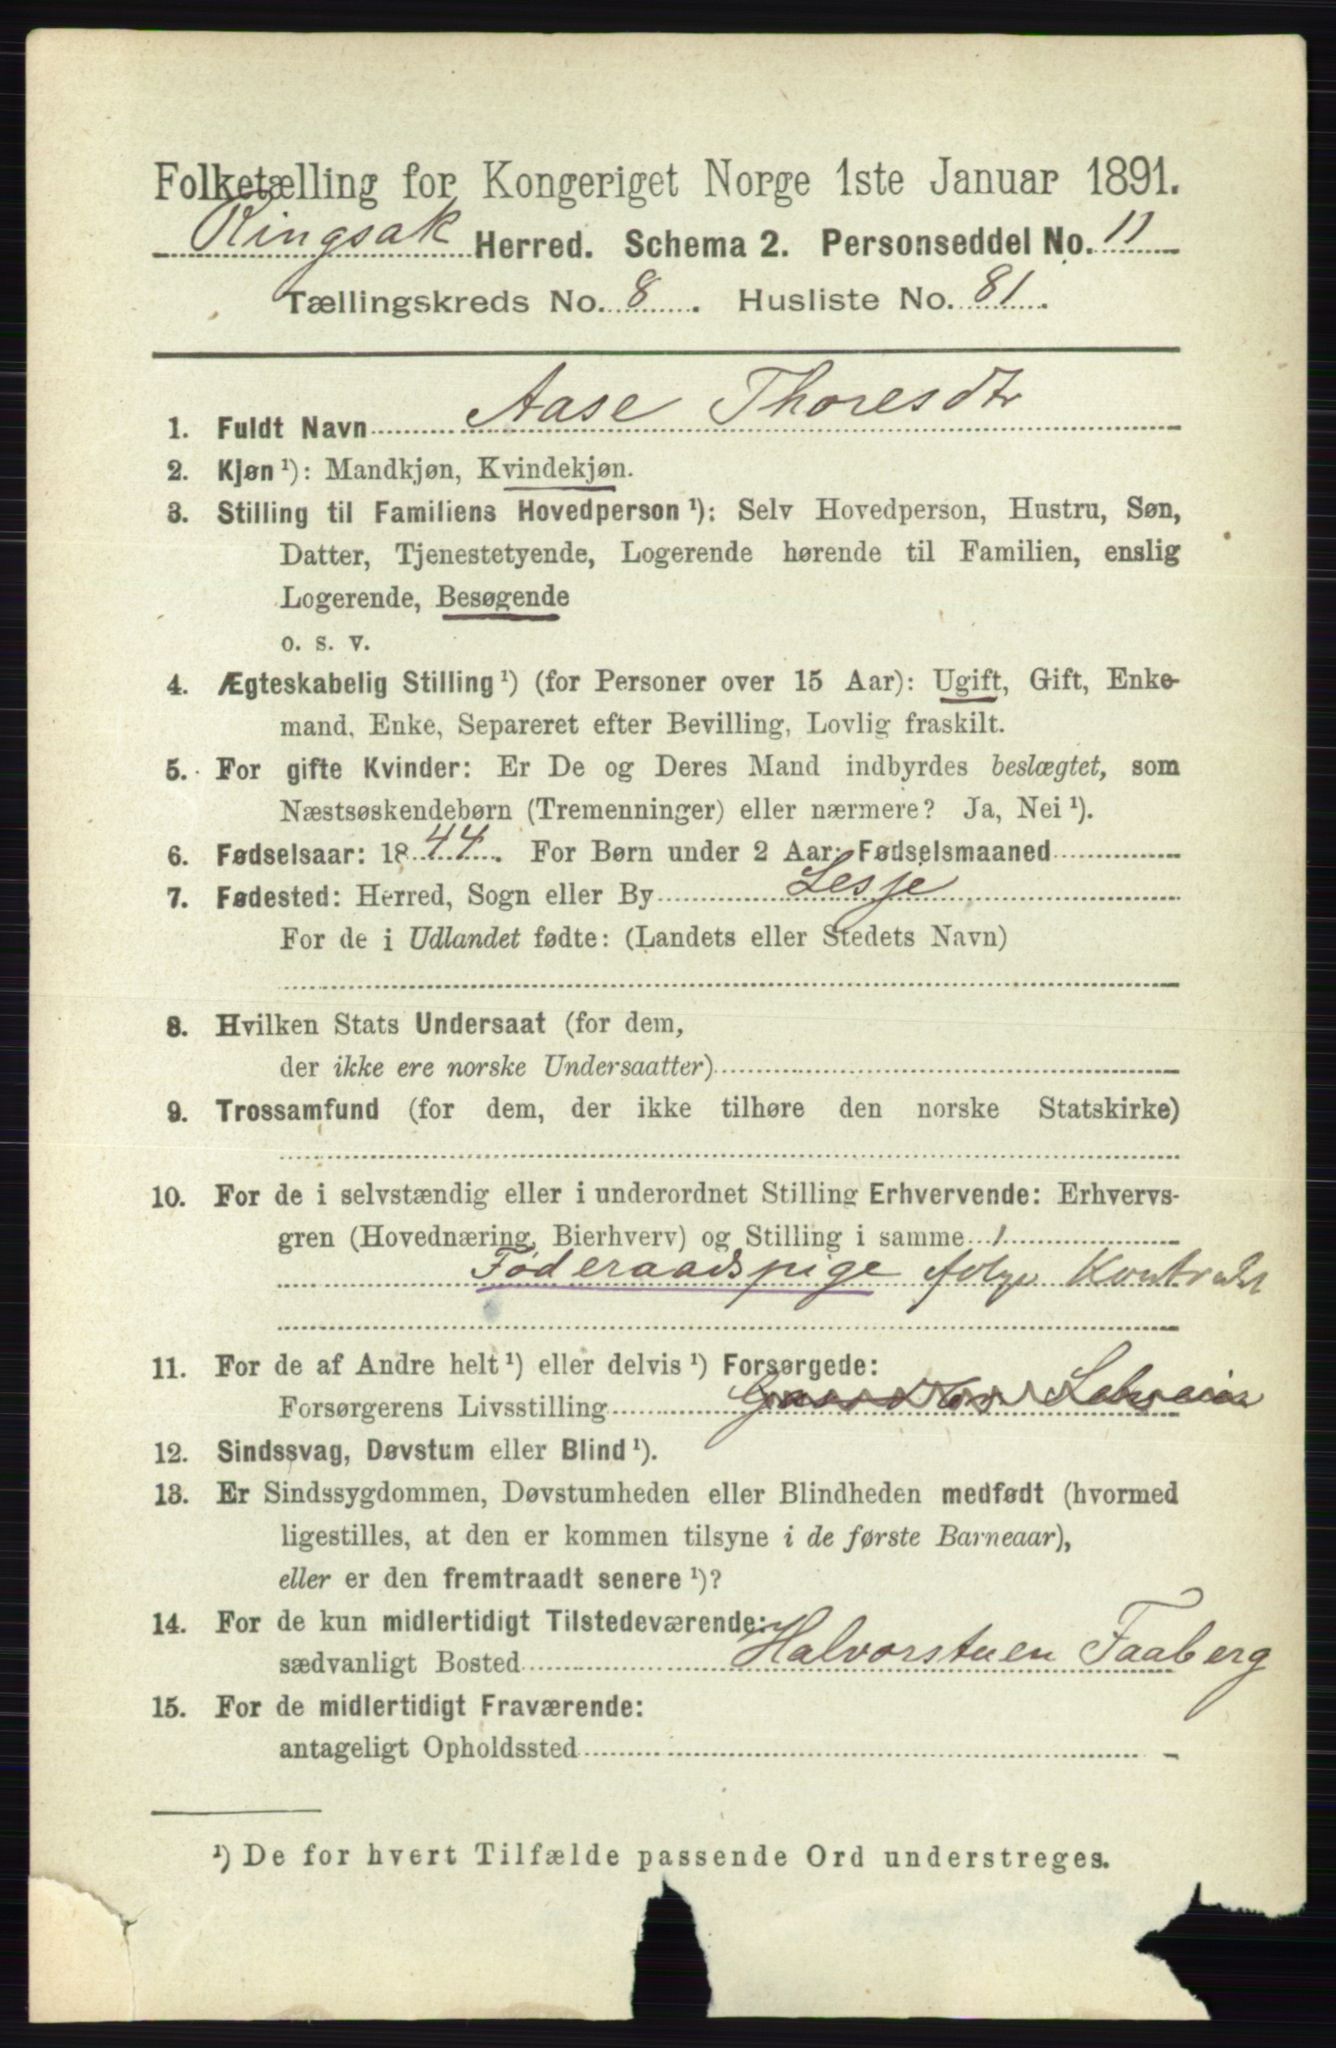 Folketælling for Kongeriget Norge 1ste Januar 1891.
Ringsak Herred. Schema 2. Personseddel No. 11
Tællingskreds No. 8. Husliste No. 81.
1. Fuldt Navn Aase Thoresdtr
2. Kjøn ¹): Mandkjøn, Kvindekjøn.
3. Stilling til Familiens Hovedperson ¹): Selv Hovedperson, Hustru, Søn,
Datter, Tjenestetyende, Logerende hørende til Familien, enslig
Logerende, Besøgende
o. s. v.
4. Ægteskabelig Stilling ¹) (for Personer over 15 Aar): Ugift, Gift, Enke-
mand, Enke, Separeret efter Bevilling, Lovlig fraskilt.
5. For gifte Kvinder: Er De og Deres Mand indbyrdes beslægtet, som
Næstsøskendebørn (Tremenninger) eller nærmere? Ja, Nei ¹).
6. Fødselsaar: 1844. For Børn under 2 Aar: Fødselsmaaned
7. Fødested: Herred, Sogn eller By Lesje
For de i Udlandet fødte: (Landets eller Stedets Navn)
8. Hvilken Stats Undersaat (for dem,
der ikke ere norske Undersaatter)
9. Trossamfund (for dem, der ikke tilhøre den norske Statskirke)
10. For de i selvstændig eller i underordnet Stilling Erhvervende: Erhvervs-
gren (Hovednæring, Bierhverv) og Stilling i samme
Føderaadspige følge Kontrakt
11. For de af Andre helt ¹) eller delvis ¹) Forsørgede:
Forsørgerens Livsstilling
12. Sindssvag, Døvstum eller Blind ¹).
13. Er Sindssygdommen, Døvstumheden eller Blindheden medfødt (hvormed
ligestilles, at den er kommen tilsyne i de første Barneaar),
eller er den fremtraadt senere ¹)?
14. For de kun midlertidigt Tilstedeværende:
sædvanligt Bosted Halvorstuen Faaberg
15. For de midlertidigt Fraværende:
antageligt Opholdssted
¹) De for hvert Tilfælde passende Ord understreges.